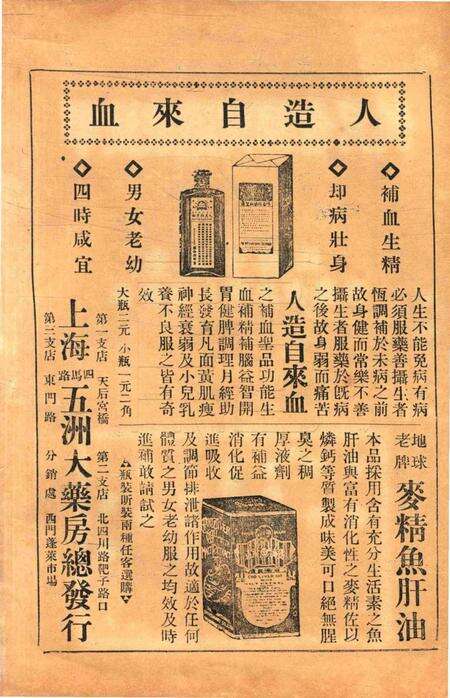 人造自來血
◇補血生精
◇却病壯身
◇男女老幼
◇四時咸宜
人生不能免病有病
必須服藥善攝生者
恆調補於未病之前
故身健而常樂不善
攝生者服藥於既病
之後故身弱而痛苦
人造自來血
之補血聖品功能生
血補精補腦益智開
胃健脾調理月經助
長發育凡面黃肌瘦
神經衰弱及小兒乳
養不良服之皆有奇
效
大瓶二元 小瓶一元二角
地球
老牌
麥精魚肝油
本品採用含有充分生活素之魚
肝油與富有消化性之麥精佐以
燐鈣等質製成味美可口絕無腥
臭之稠
厚液劑
有補益
消化促
進吸收
及調節排泄諸作用故適於任何
體質之男女老幼服之均效及時
進補敢請試之
瓶裝聽裝兩種任客選購
上海
四馬路
五洲大藥房總發行
第一支店 天后宮橋
第二支店 北四川路靶子路口
第三支店 東門路
分銷處 西門蓬萊市場